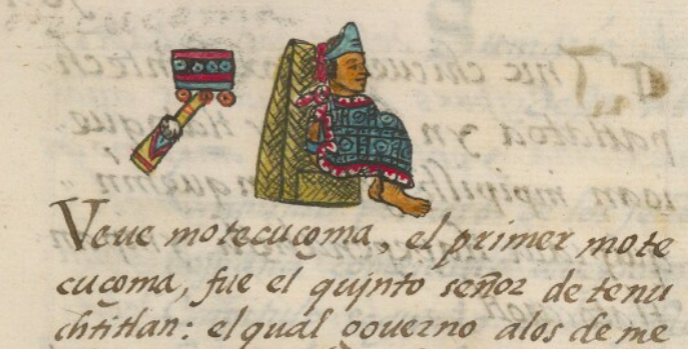 Veue motecuçoma, el primer mote
cuçoma, fue el quinto señor de tenu
chtitlan: el qual gouerno alos de me